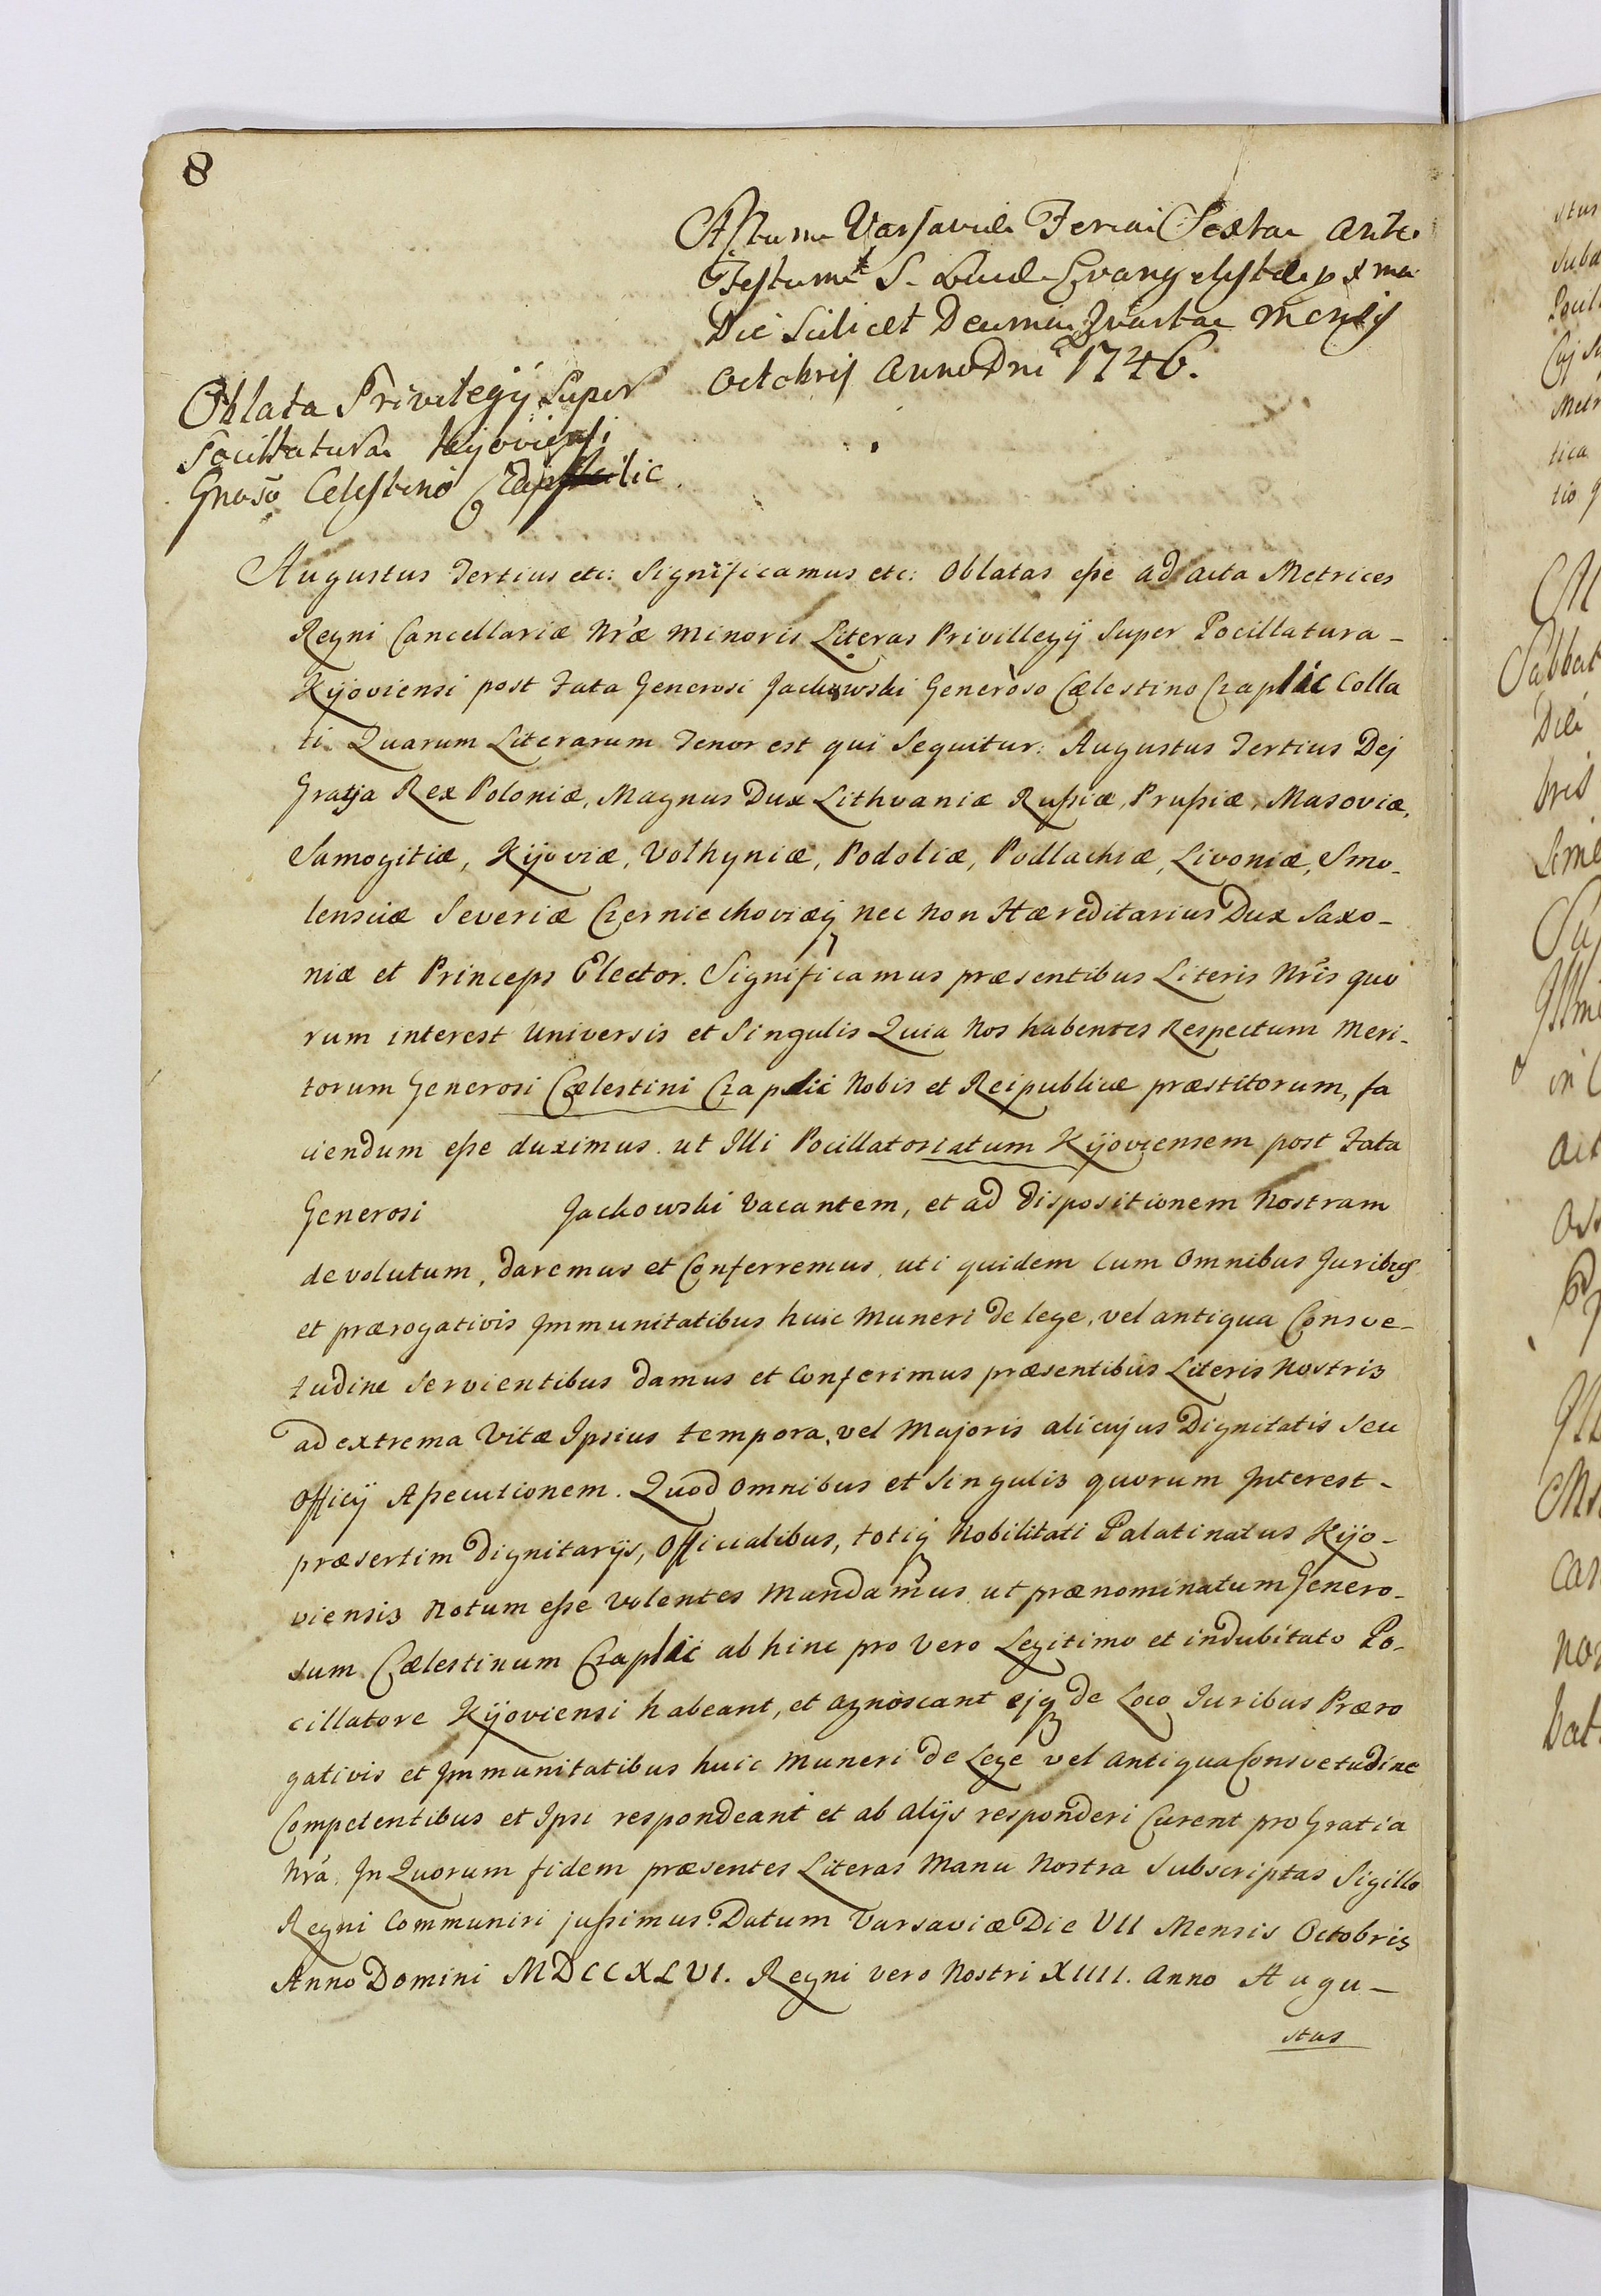 8
Actum Varsaviæ Feria Sexta ante
Festum S. Lucæ Evangelystæ pxma
Die Scilicet Decima Quarta Mensis
Octobris Anno Dni 1746.
Oblata Privilegÿ Super
Pocillatura Kijoviensi
Gnoso Celestino Czaplic
Augustus Tertius etc: Significamus etc: Oblatas esse ad acta Metrices
Regni Cancellariæ Nr'æ minoris Literas Privillegij Super Pocillatura -
Kijoviensi post Fata Generosi Jackowski Generoso Cælestino Czaplic Colla
ti. Quarum Literarum Tenor est qui Sequitur: Augustus Tertius Dej
Gratja Rex Poloniæ, Magnus Dux Lithvaniæ Russiæ, Prussiæ, Masoviæ,
Samogitiæ, Kijoviæ, Volhyniæ, Podoliæ, Podlachiæ, Livoniæ, Smo-
lensciæ Severiæ Czerniechoviæq nec non Hæreditarius Dux Saxo-
niæ et Princeps Elector. Significamus præsentibus Literis Nr'is quo
rum interest Universis et Singulis Quia Nos habentes Respectum Meri-
torum Generosi Cælestini Czaplic Nobis et Reipublicæ præstitorum, fa
ciendum esse duximus. ut Illi Pocillatoriatum Kijoviensem post Fata
Generosi Jackowski Vacantem, et ad dispositionem Nostram
devolutum, daremus et Conferremus, uti quidem Cum Omnibus Juribus
et prærogativis Immunitatibus huic Muneri de lege, vel antiqua Consve-
tudine Servientibus damus et Conferimus præsentibus Literis Nostris
ad extrema Vitæ Ipsius tempora, vel Majoris alicujus Dignitatis Seu
Officij Assecutionem. Quod Omnibus et Singulis quorum Interest -
præsertim Dignitarijs, Officialibus, totiq Nobilitati Palatinatus Kijo-
viensis Notum esse Volentes Mandamus. ut prænominatum Genero-
sum Cælestinum Czaplic ab hinc pro Vero Legitimo et indubitato Po-
cillatore Kijoviensi habeant, et agnoscant ejq de Loco Juribus Præro
gativis et Immunitatibus huic Muneri de Lege vel Antiqua Consvetudine
Competentibus et Ipsi respondeant et ab alijs responderi Curent pro Gratia
Nr'a. In Quorum fidem præsentes Literas Manu Nostra Subscriptas Sigillo
Regni Communiri jussimus. Datum Varsaviæ Die VII Mensis Octobris
Anno Domini MDCCXLVI. Regni vero Nostri XIIII. Anno Augu-
stus